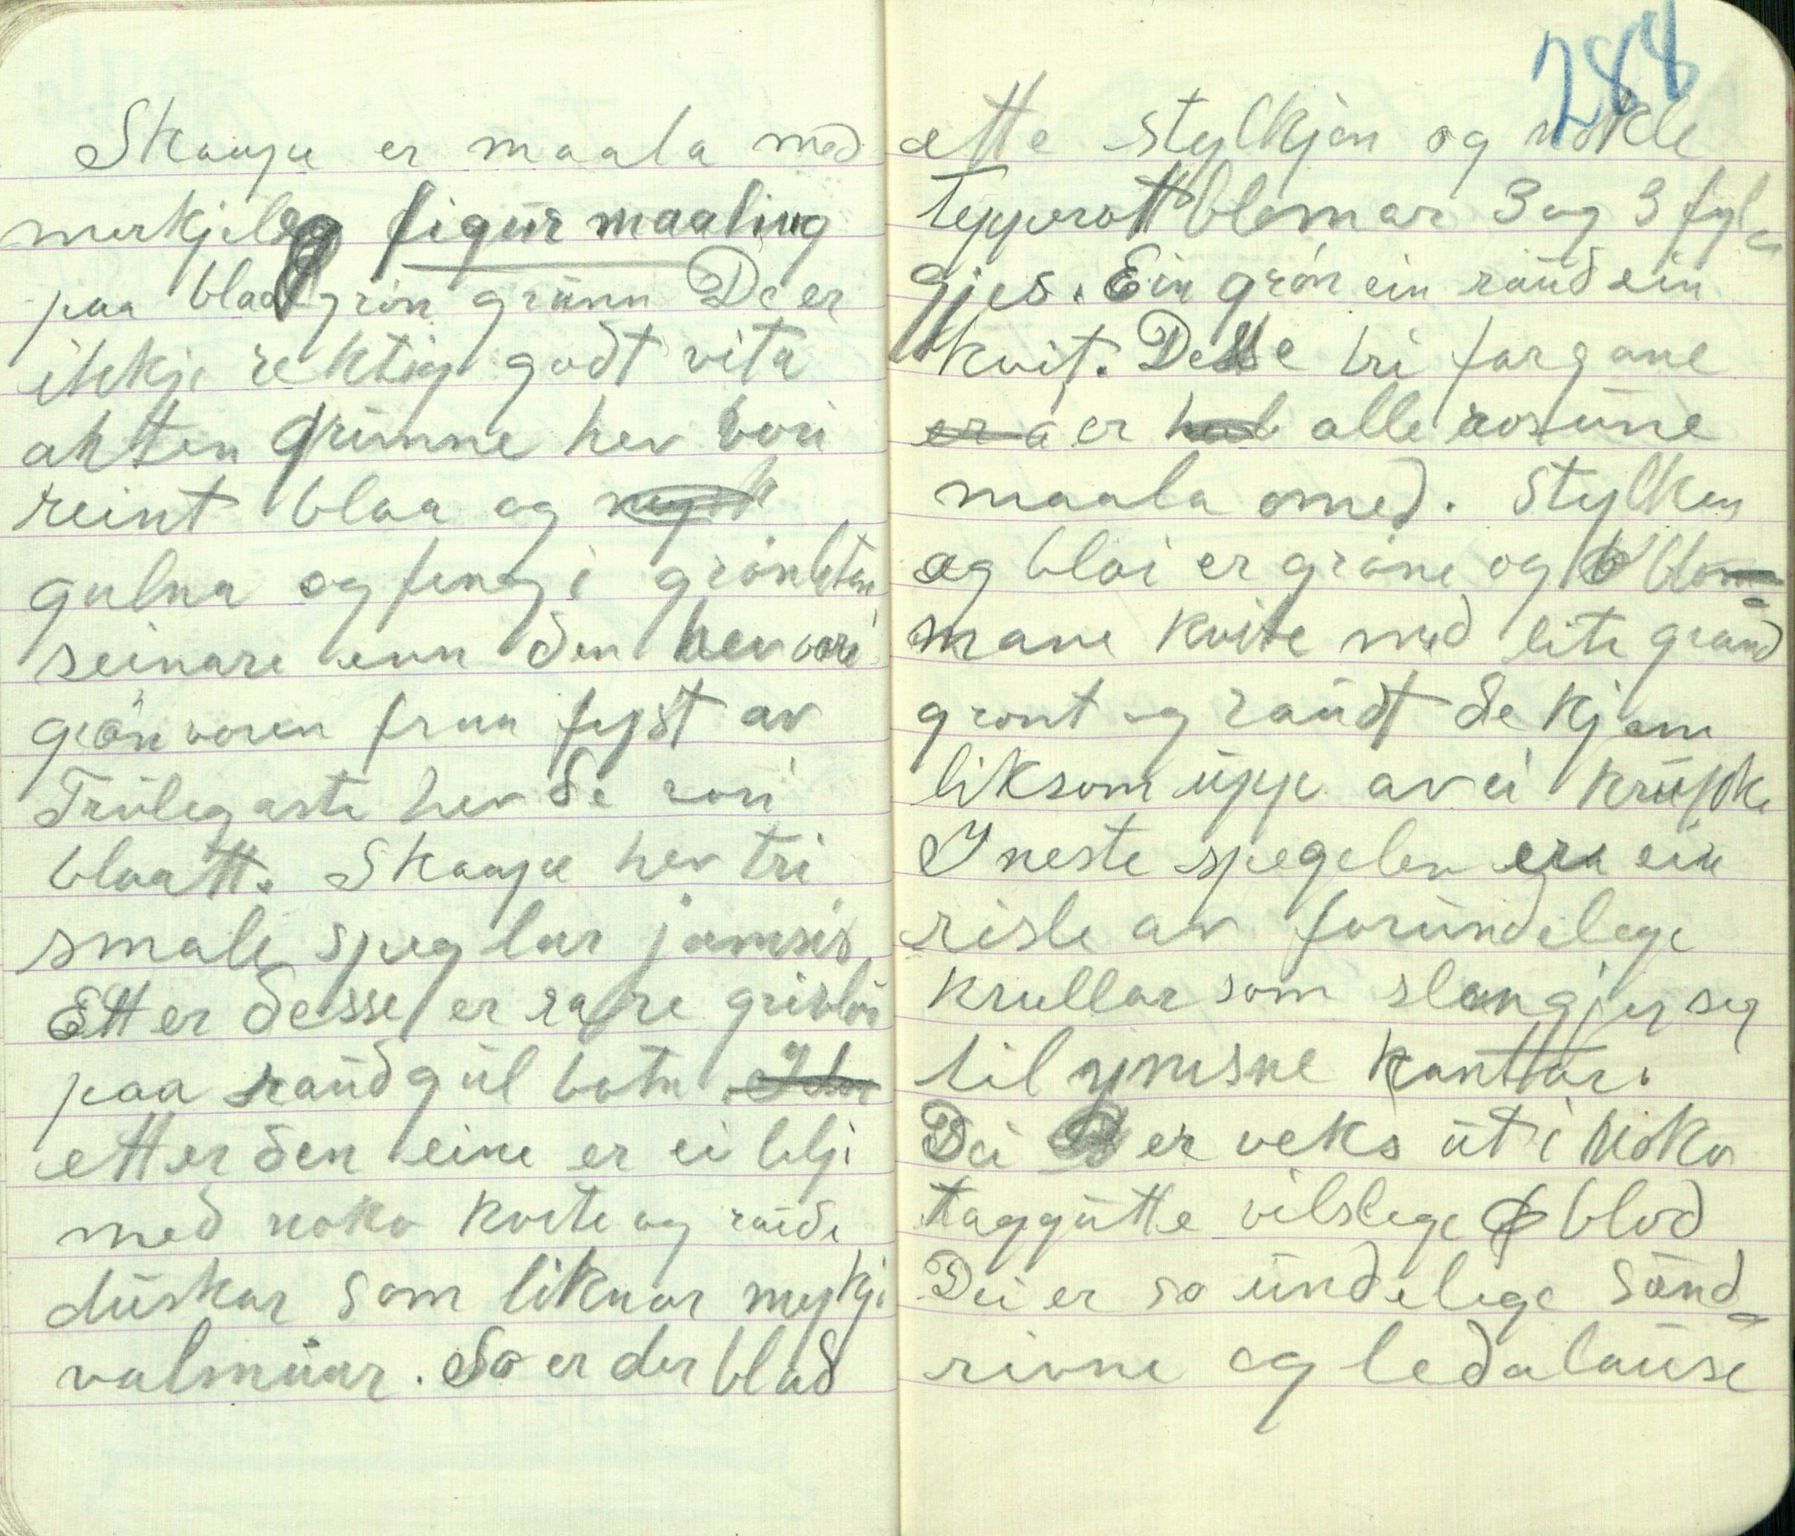 Skaape er maala med
merkjeleg figur maaling
paa blaagrön grunn De er
ikkje rektig godt vita
ahtten grunne hev vori
reint blaa og
gulna og fengi grönletan
seinare enn den hev vori
grön voren fraa fyst av
Trulegaste hev de vori
blaatt. Skaape hev tri
smale speglar jamsis
Etter desse er rare
paa raudgul botn
etter den eine er ei lilji
med noko kvite og raude
duskar som liknar mykji
valmuar. So er der blad
288
ette stylkjen og nokle
blomar 3 og 3 fyl-
gjes. Ein grön ein raud ein
kvit. Desse tri fargane
er a er alle rosune
maala med. Stylken
og blai er gröne og blom-
mane kvite med lite grand
grönt og raudt de kjem
liksom upp av ei krukke
I neste spegelen era ein
risle av forundelege
krullar som slengjer seg
til ymsne kanttar.
Dei er veks ut i noko
taggutte vilslege blod
Dei er so undelege sönd-
rivne og ledalause